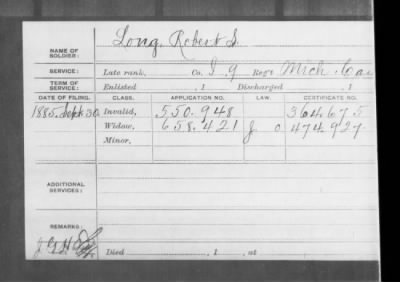 NAME OF SOLDIER: Long, Robert S.
SERVICE: Late rank, Co. I 9 Reg't Mich. Cav
TERM OF SERVICE: Enlisted , 1 Discharged , 1
DATE OF FILING. CLASS. APPLICATION NO. LAW. CERTIFICATE NO.
1885. Sept. 30 Invalid, 550.948 364.675
Widow, 658.421 J 0 474.927
Minor,
ADDITIONAL SERVICES:
REMARKS:
Died , 1 , at